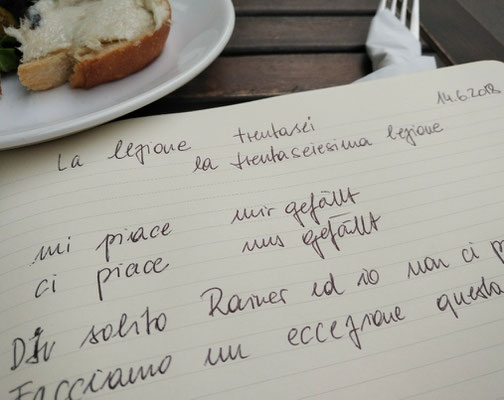 14.6.2018
La legione trentasei
la trentaseiesima legione
mi piace mir gefällt
ci piace uns gefällt
Di solito Rainer ed io non ci
Facciamo un eccezione questa